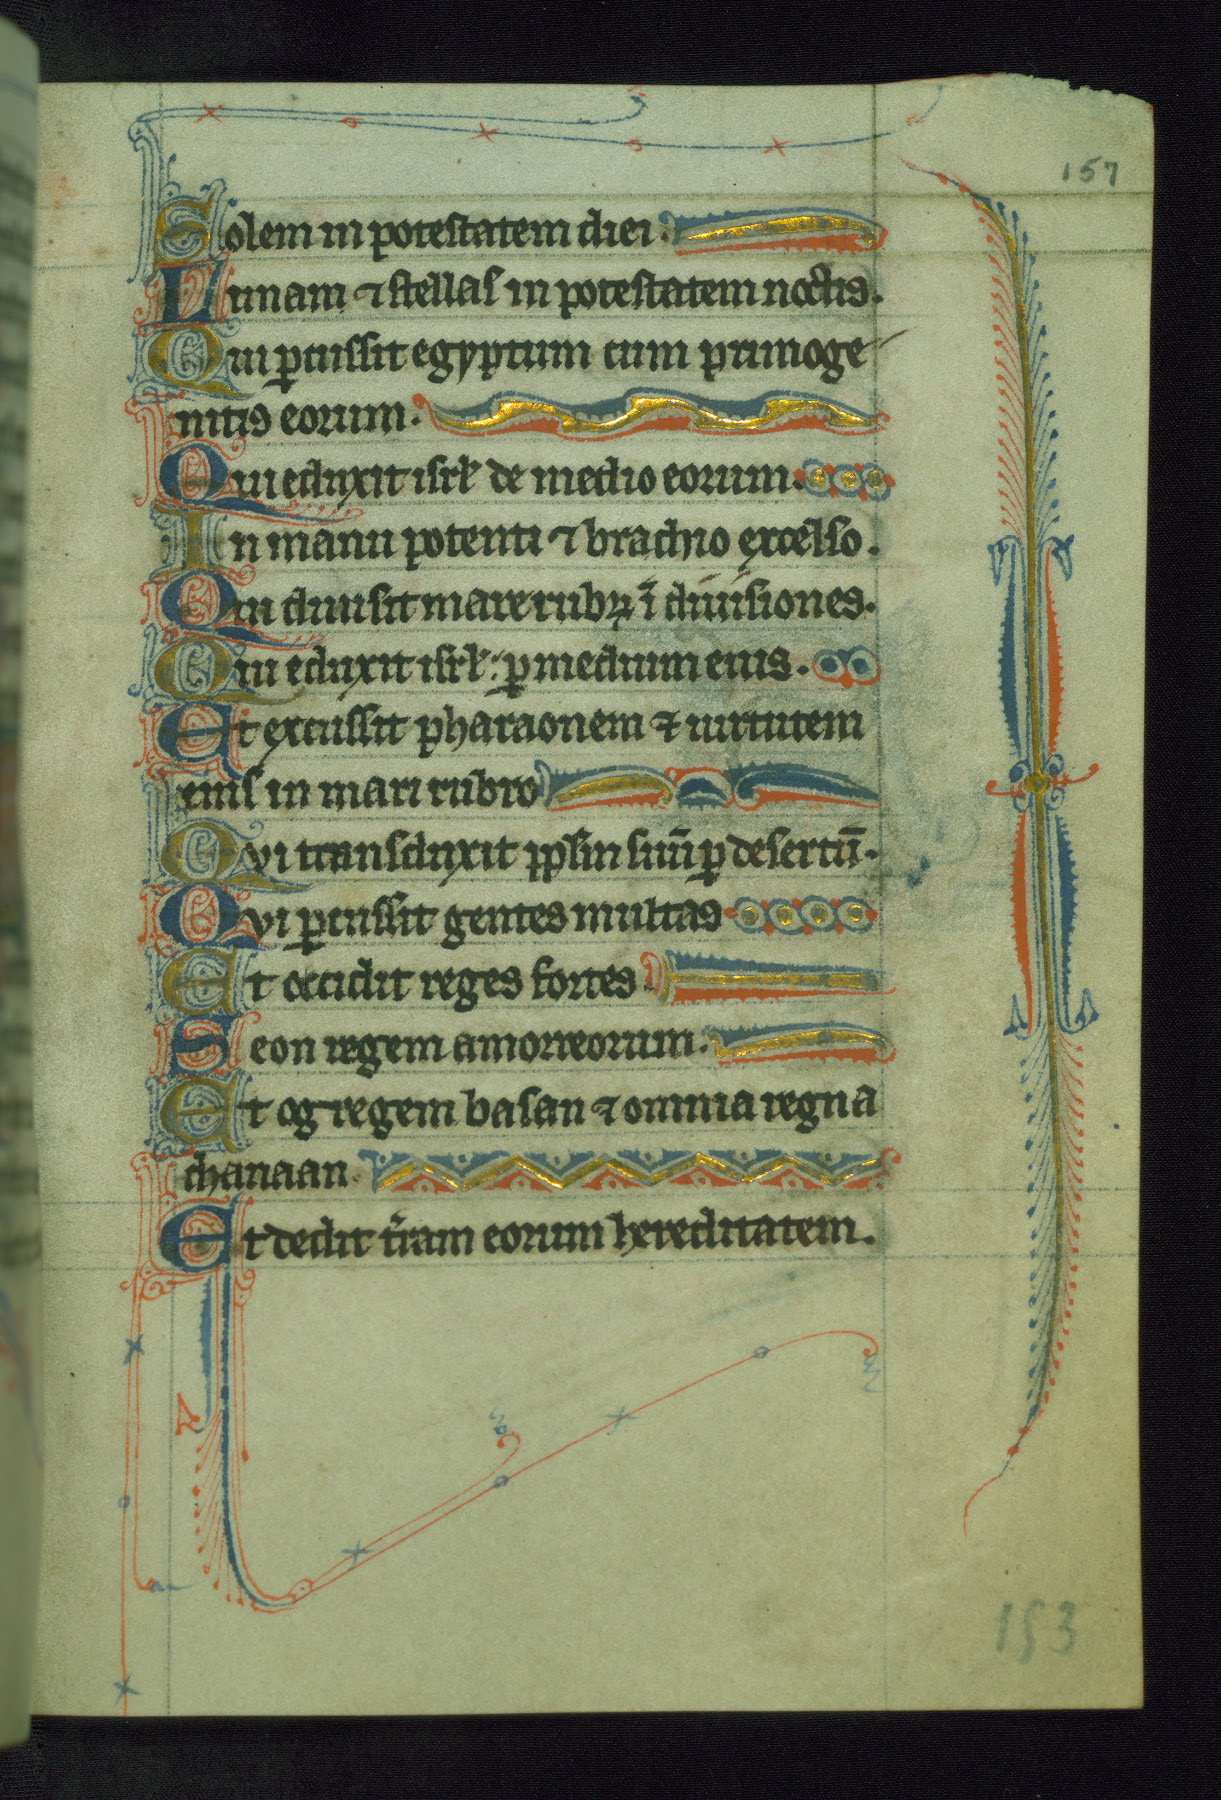 157
Solem in potestatem diei.
Lunam ⁊ stellas in potestatem noctis.
Qui ꝑcussit egyptum cum primoge
nitis eorum.
Qui eduxit isrl̄ de medio eorum.
In manu potenti ⁊ brachio excelso.
Qui diuisit mare rubꝝ ī diuisiones.
Qui eduxit isrl̄: ꝑ medium eius.
Et excussit pharaonem ⁊ uirtutem
eius in mari rubro
Qvi transduxit pplm̄ suū ꝑ desertū.
Qvi ꝑcussit gentes multas
Et occidit reges fortes.
Seon regem amorreorum.
Et og regem basan ⁊ omnia regna
chanaan
Et dedit t̄ram eorum hereditatem.
153